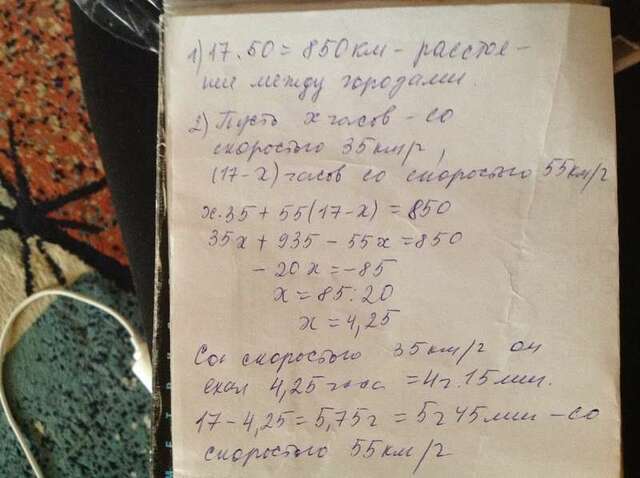 1) 17 · 50 = 850 км - расстоя-
нии между городами.
2) Пусть x часов - со
скоростью 35 км/г,
(17-x) часов со скоростью 55 км/г
x·35 + 55(17-x) = 850
35x + 935 - 55x = 850
- 20x = -85
x = 85:20
x = 4,25
Со скоростью 35 км/г он
ехал 4,25 часа = 4г.15мин.
17-4,25 = 5,75г = 5г 45мин - со
скоростью 55 км/г